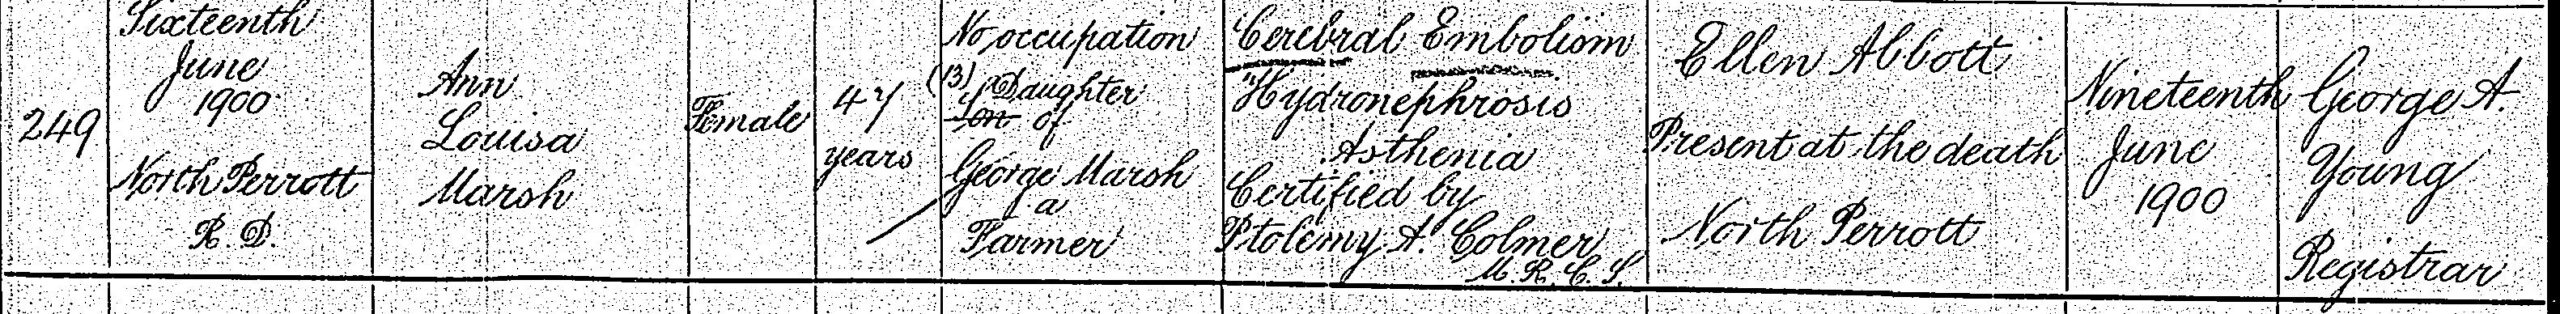 249
Sixteenth
June
1900
North Perrott
R. D.
Ann
Louisa
Marsh
Female
47
years
No occupation
(13) Daughter
Son of
George Marsh
a
Farmer
Cerebral Embolism
Hydronephrosis
Asthenia
Certified by
Ptolemy A. Colmer
M. R. C. S.
Ellen Abbott
Present at the death
North Perrott
Nineteenth
June
1900
George A.
Young
Registrar